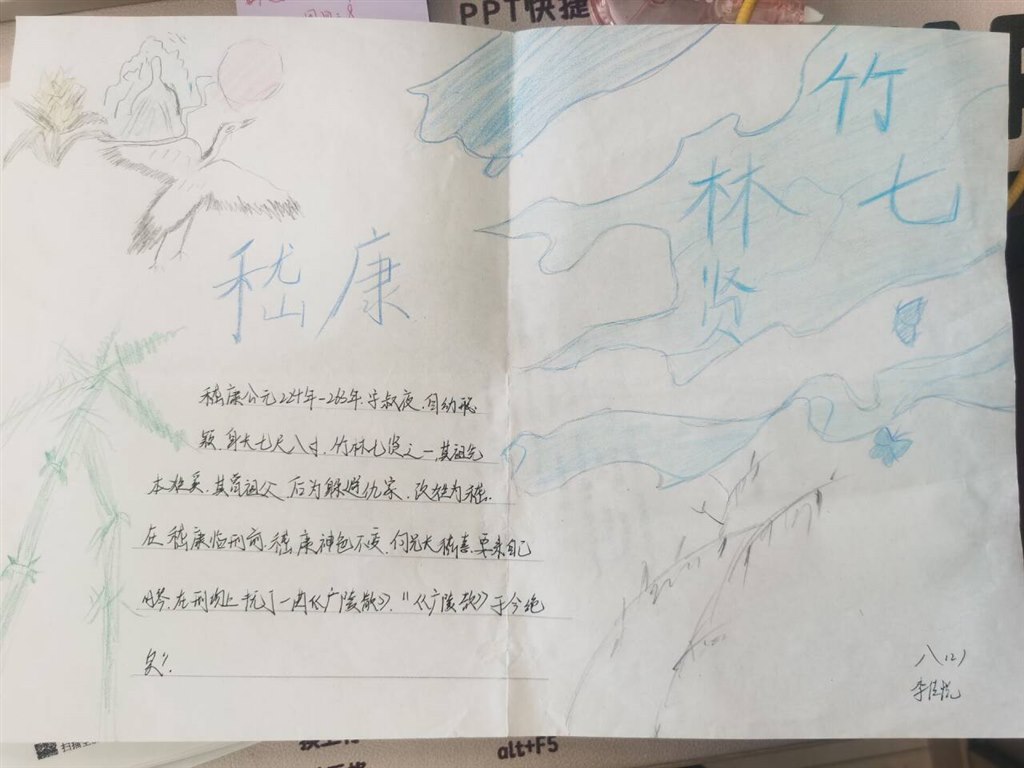 PPT快捷
竹
七
林
贤
嵇康
嵇康公元224年-263年字叔夜.自幼聪
颖.身长七尺八寸.竹林七贤之一.其祖先
本姓奚.其曾祖父 后为躲避仇家.改姓为嵇.
在嵇康临刑前.嵇康神色不变.向兄长嵇喜.要来自己
的琴.在刑场上抚了一曲《广陵散》."《广陵散》于今绝
矣".
八(2)
李佳悦
alt+F5